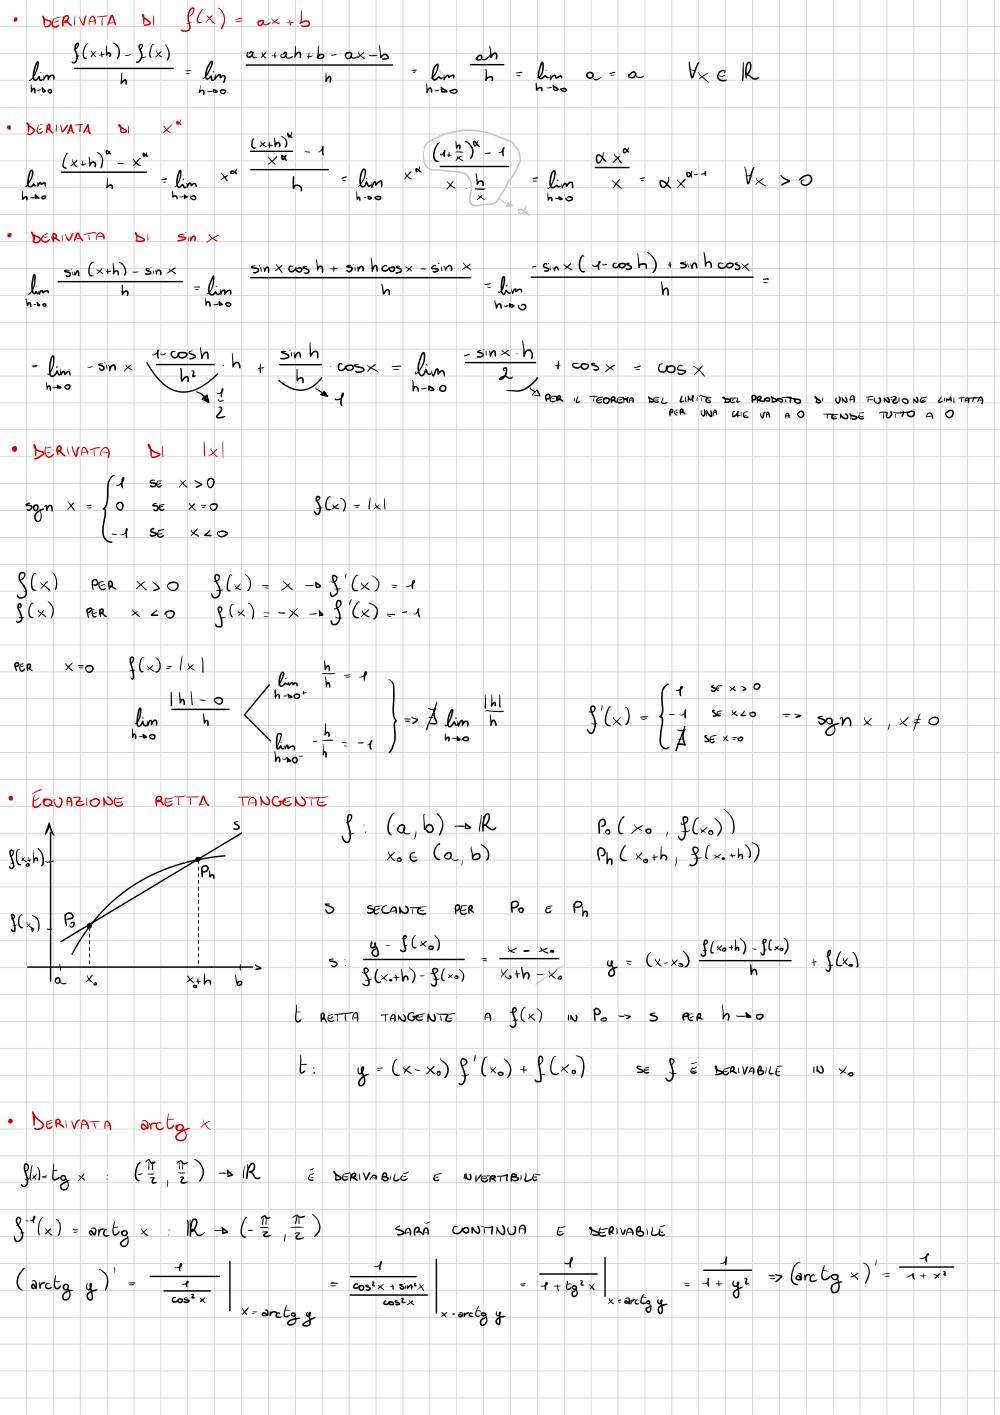 • DERIVATA DI f(x) = ax+b
lim h→0 (f(x+h) - f(x))/h = lim h→0 (ax+ah+b-ax-b)/h = lim h→0 ah/h = lim h→0 a = a ∀x ∈ ℝ
• DERIVATA DI x^α
lim h→0 ((x+h)^α - x^α)/h = lim h→0 x^α ((x+h)^α/x^α - 1)/h = lim h→0 x^α ((1+h/x)^α - 1)/(x · h/x) = lim h→0 αx^α/x = αx^(α-1) ∀x > 0
→ α
• DERIVATA DI sin x
lim h→0 (sin (x+h) - sin x)/h = lim h→0 (sin x cos h + sin h cos x - sin x)/h = lim h→0 (-sin x (1-cos h) + sin h cos x)/h =
- lim h→0 - sin x (1-cos h)/h² · h + sin h/h · cos x = lim h→0 (-sin x · h)/2 + cos x = cos x
→ 1/2 → 1 → PER IL TEOREMA DEL LIMITE DEL PRODOTTO DI UNA FUNZIONE LIMITATA
PER UNA CHE VA A 0 TENDE TUTTO A 0
• DERIVATA DI |x|
sgn x = { 1 SE x > 0
0 SE x = 0 f(x) = |x|
-1 SE x < 0
f(x) PER x > 0 f(x) = x → f'(x) = 1
f(x) PER x < 0 f(x) = -x → f'(x) = -1
PER x = 0 f(x) = |x|
lim h→0 (|h| - 0)/h < lim h→0⁺ h/h = 1
lim h→0⁻ -h/h = -1 } => ∄ lim h→0 |h|/h
f'(x) = { 1 SE x > 0
-1 SE x < 0 => sgn x , x ≠ 0
∄ SE x = 0
• EQUAZIONE RETTA TANGENTE
s
f(x₀+h)
Ph
f(x₀)
P₀
a x₀ x₀+h b
f : (a, b) → ℝ P₀ (x₀ , f(x₀))
x₀ ∈ (a, b) Ph (x₀+h , f(x₀+h))
s SECANTE PER P₀ E Ph
s: (y - f(x₀))/(f(x₀+h) - f(x₀)) = (x - x₀)/(x₀+h - x₀) y = (x-x₀) (f(x₀+h) - f(x₀))/h + f(x₀)
t RETTA TANGENTE A f(x) IN P₀ → s PER h→0
t: y = (x-x₀) f'(x₀) + f(x₀) SE f È DERIVABILE IN x₀
• DERIVATA arctg x
f(x) = tg x : (-π/2, π/2) → ℝ È DERIVABILE E INVERTIBILE
f⁻¹(x) = arctg x : ℝ → (-π/2, π/2) SARÁ CONTINUA E DERIVABILE
(arctg y)' = 1/(1/cos²x) | x = arctg y = 1/((cos²x + sin²x)/cos²x) | x = arctg y = 1/(1+tg²x) | x = arctg y = 1/(1+y²) => (arctg x)' = 1/(1+x²)